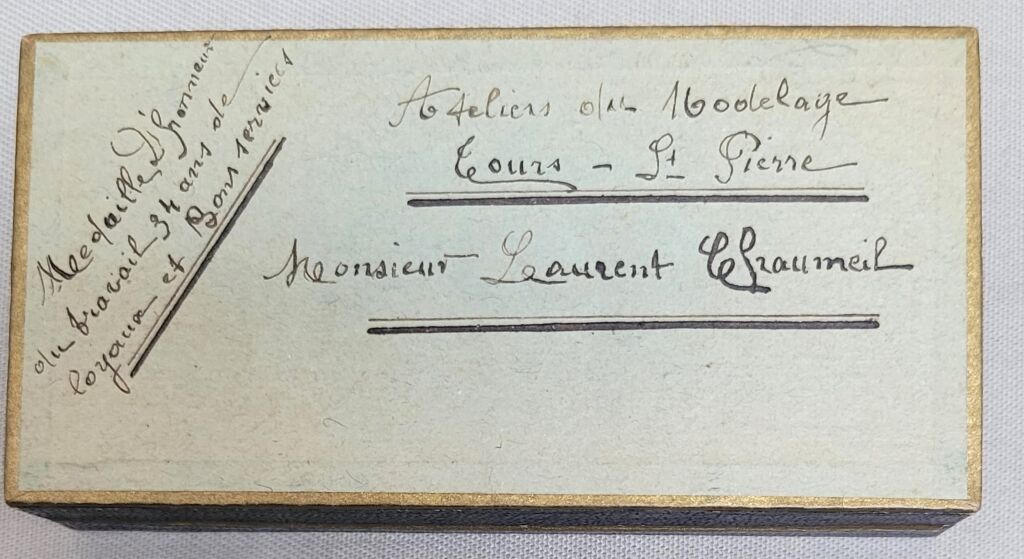 Medaille D'honneur
du travail 34 ans de
loyaux et Bons services
Ateliers du Modelage
Tours - St Pierre
Monsieur Laurent Chaumeil